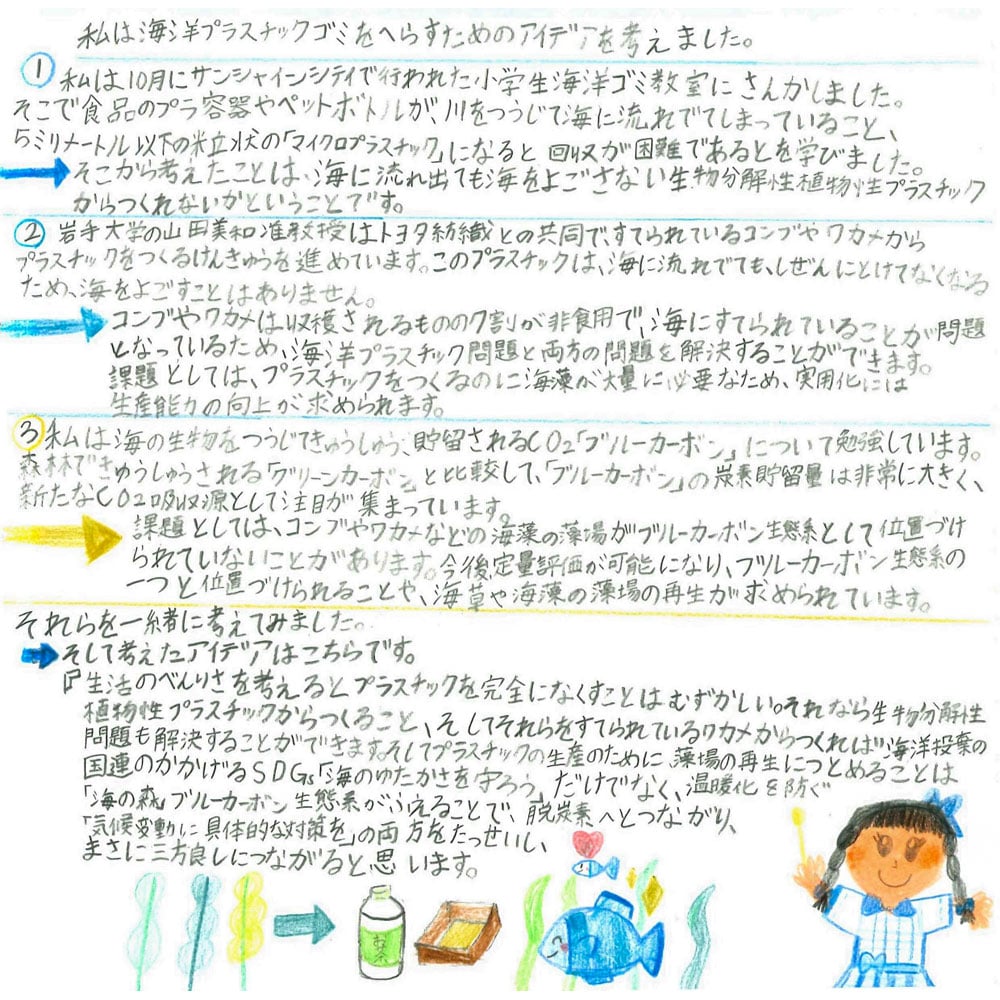 私は海洋プラスチックゴミをへらすためのアイデアを考えました。
① 私は10月にサンシャインシティで行われた小学生海洋ゴミ教室にさんかしました。
そこで食品のプラ容器やペットボトルが、川をつうじて海に流れでてしまっていること、
5ミリメートル以下の粒状の「マイクロプラスチック」になると回収が困難であるとを学びました。
そこから考えたことは、海に流れ出ても海をよごさない生物分解性植物性プラスチック
からつくれないかということです。
② 岩手大学の山田美和准教授はトヨタ紡織との共同で、すてられているコンブやワカメから
プラスチックをつくるけんきゅうを進めています。このプラスチックは、海に流れでても、しぜんにとけてなくなる
ため、海をよごすことはありません。
コンブやワカメは収穫されるものの7割が非食用で、海にすてられていることが問題
となっているため、海洋プラスチック問題と両方の問題を解決することができます。
課題としては、プラスチックをつくるのに海藻が大量に必要なため、実用化には
生産能力の向上が求められます。
③ 私は海の生物をつうじてきゅうしゅう、貯留されるCO2「ブルーカーボン」について勉強しています。
森林できゅうしゅうされる「グリーンカーボン」と比較して、「ブルーカーボン」の炭素貯留量は非常に大きく、
新たなCO2吸収源として注目が集まっています。
課題としては、コンブやワカメなどの海藻の藻場がブルーカーボン生態系として位置づけ
られていないことがあります。今後定量評価が可能になり、ブルーカーボン生態系の
一つと位置づけられることや、海草や海藻の藻場の再生が求められています。
それらを一緒に考えてみました。
そして考えたアイデアはこちらです。
『生活のべんりさを考えるとプラスチックを完全になくすことはむずかしい。それなら生物分解性
植物性プラスチックからつくること、そしてそれらをすてられているワカメからつくれば海洋投棄の
問題も解決することができます。そしてプラスチックの生産のために藻場の再生につとめることは
国連のかかげるSDGs「海のゆたかさを守ろう」だけでなく、温暖化を防ぐ
「海の森」ブルーカーボン生態系がふえることで、脱炭素へとつながり、
「気候変動に具体的な対策を」の両方をたっせいし、
まさに三方良しにつながると思います。
お茶